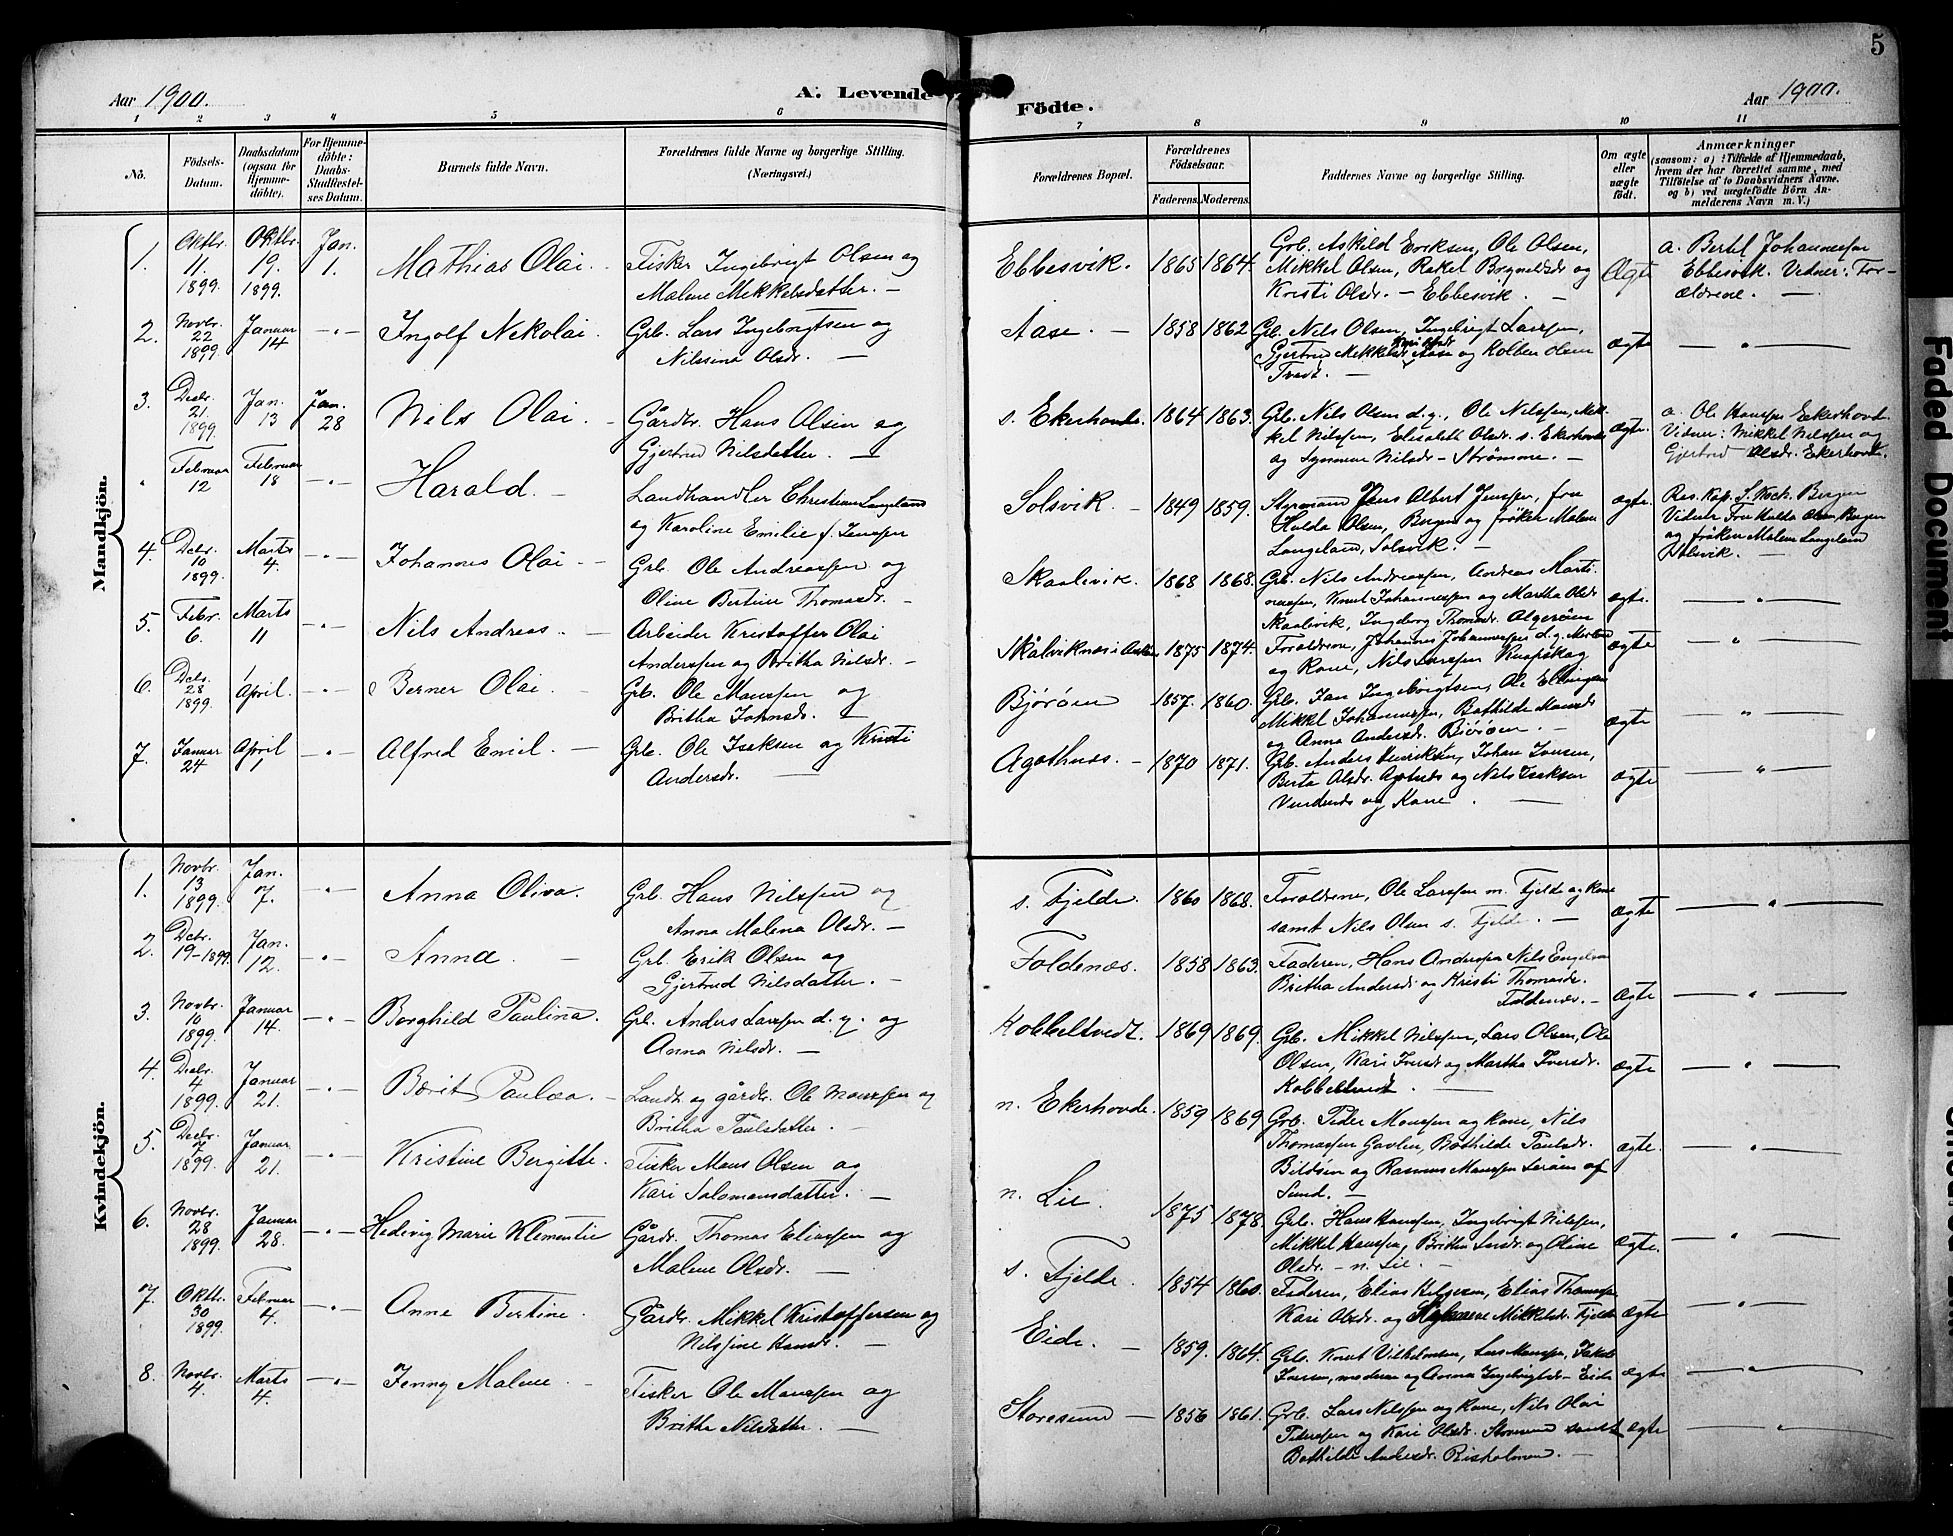 5
Aar 1900.
A. Levende Födte.
Aar 1900.
1 2 3 4 5 6 7 8 9 10 11
No.
Födsels-
Datum.
Daabsdatum
(ogsaa for
Hjemme-
döbte).
For Hjemme-
döbte:
Daabs-
Stadfæstel-
ses Datum.
Barnets fulde Navn.
Forældrenes fulde Navne og borgerlige Stilling.
(Næringsvei.)
Forældrenes Bopæl.
Forældrenes
Födselsaar.
Faderens. Moderens.
Faddernes Navne og borgerlige Stilling.
Om ægte
eller
uægte
födt.
Anmærkninger
(saasom: a) i Tilfælde af Hjemmedaab,
hvem der har forrettet samme, med
Tilföielse af to Daabsvidners Navne.
og b) ved uægtefödte Börn An-
melderens Navn m. V.)
Mandkjön.
1.
Oktbr.
11.
1899
Oktbr.
19.
1899.
Jan.
1.
Mathias Olai.
Fisker Ingebrigt Olsen og
Malene Mikkelsdatter. —
Ebbesvik.
1865 1864.
Grb. Askild Eriksen, Ole Olsen,
Mikkel Olsen, Rakel Brynildsdr og
Kristi Olsdr. — Ebbesvik. —
Ægte
a. Bertel Johannessen
Ebbesvik. Vidner: For-
ældrene. —
2.
Novbr.
22
1899.
Januar
14
— " —
Ingolf Nikolai.
Grb. Lars Ingebrigtsen og
Nilsine Olsdr. —
Aase. —
1858 1862
Grb. Nils Olsen, Ingebrigt Larssen,
Gjertrud Mikkelsdr Aase og Kolben Olsen
Tvedt. —
ægte
— " —
3.
Desbr.
21.
1899
Jan.
13
Jan.
28
Nils Olai.
Gårdbr. Hans Olsen og
Gjertrud Nilsdatter. —
s. Ekerhovde.
1864 1863.
Grb. Nils Olsen d.y., Ole Nilssen, Mik-
kel Nilssen, Elisabeth Olsdr. s. Ekerhovde
og Synneve Nilsdr — Strömme. —
ægte.
a. Ole Hanssen Ekerhovde.
Vidner: Mikkel Nilssen og
Gjertrud Olsdr. Ekerhovde.
"
Februar
12
Februar
18
— " —
Harald. —
Landhandler Christian Langeland
og Karoline Emilie f. Jenssen
Solsvik. —
1849 1859.
Styrmand Jens Albert Jenssen, fru
Hulda Olsen, Bergen og fröken Malene
Langeland, Solsvik. —
ægte.
Res. Kap. S. Koch. Bergen
Vidner Fru Hulda Olsen, Bergen
og fröken Malene Langeland
Solsvik. —
4.
Decbr.
10
1899.
Marts
4.
— " —
Johannes Olai —
Grb. Ole Andreassen og
Oline Bertine Thomasdr. —
Skaalevik.
1868 1868.
Grb. Nils Andreassen, Andreas Marti-
nussen, Knut Johannessen og Martha Olsdr
Skaalevik, Ingeborg Thomasdr. Algeröen
ægte.
— " —
5.
Febr.
6.
Marts
11
— " —
Nils Andreas. —
Arbeider Kristoffer Olai
Anderssen og Britha Nilsdr. —
1875 1874.
Forældrene, Johannes Johannessen d.y.
og Kone, Nils Larssen Knapskog
ægte
— " —
6.
Decbr.
28
1899.
1
April.
— " —
Berner Olai. —
Grb. Ole Monssen og
Britha Johnsdr. —
Björöen
1857. 1860.
Grb. Jan Ingebrigtsen, Ole Ellingsen
Mikkel Johannessen, Bothilde Monsdr
og Anna Andersdr. Björöen —
ægte
— " —
7.
Januar
24
April
1
— " —
Alfred Emil. —
Grb. Ole Isaksen og Kristi
Andersdr. —
Agothnes. —
1870 1871.
Grb. Anders Henriksen, Johan Iversen,
Berta Olsdr. Agotnes og Nils Isaksen
og Kone. —
ægte
— " —
Kvindekjön.
1.
Novbr.
13
1899.
Jan.
7.
— " —
Anna Oliva.
Grb. Hans Nilssen og
Anna Malena Olsdr. —
s. Fjelde.
1860 1868.
Forældrene, Ole Larssen m. Fjelde og Kone
samt Nils Olsen s. Fjelde. —
ægte
— " —
2.
Decbr.
19-1899.
Jan.
12.
— " —
Anna —
Grb. Erik Olsen og
Gjertrud Nilsdatter. —
Foldenæs.
1858 1863.
Faderen, Hans Anderssen Nils
Britha Andersdr og Kristi Thomasdr.
Foldenæs. —
ægte
— " —
3.
Novbr.
10
1899.
Januar
14.
— " —
Borghild Paulina.
Grb. Anders Larssen d. y. og
Anna Nilsdr. —
Kobbeltvedt.
1869 1869.
Grb. Mikkel Nilssen, Lars Olsen, Ole
Olsen, Kari Iversdr og Martha Iversdr.
Kobbeltvedt. —
ægte
— " —
4.
Decbr.
4
1899.
Januar
21.
— " —
Berit Paulea. —
Landh. og gårdbr. Ole Monssen og
Britha Paulsdatter. —
n. Ekerhovde.
1859 1869
Grb. Peder Monssen og kone, Nils
Thomassen Gavlen, Bothilde Paulsdr.
Bildöen og Rasmus Monssen Leröen af
Sund. —
ægte.
— " —
5.
Decbr.
7
1899.
Januar
21.
— " —
Kristine Bergitte.
Fisker Mons Olsen og
Kari Salomonsdatter. —
n. Lie.
1875 1878.
Grb. Hans Hanssen, Ingebrigt Nilssen,
Mikkel Hanssen, Britha Larsdr. og Oline
Olsdr. — n. Lie. —
ægte.
— " —
6.
Novbr.
28
1899.
Januar
28.
— " —
Hedevig Marie Klementie
Gårdbr. Thomas Eliassen og
Malene Olsdr. —
s. Fjelde.
1854 1860.
Faderen, Elias Helgesen, Elias Thomassen
Kari Olsdr. og Mikkelsdr. Fjelde
ægte
— " —
7.
Oktbr.
30
1899.
Februar
4.
— " —
Anne Bertine.
Gårdbr. Mikkel Kristoffersen og
Nilssine Hansdr. —
Eide. —
1859. 1864.
Grb. Knut Vilhelmsen, Lars Monssen, Jakob
Iversen, moderen og Anna Ingebrigtsdr — Eide
ægte
— " —
8.
Novbr.
4.
Marts
4.
— " —
Jenny Malene —
Fisker Ole Monssen og
Britha Nilsdatter. —
Storesund —
1856 1861.
Grb. Lars Nilssen og Kone, Nils Olai
Pederssen og Kari Olsdr. Storesund samt
Bothilde Andersdr. Risholmen. —
ægte
— " —
Faded Document